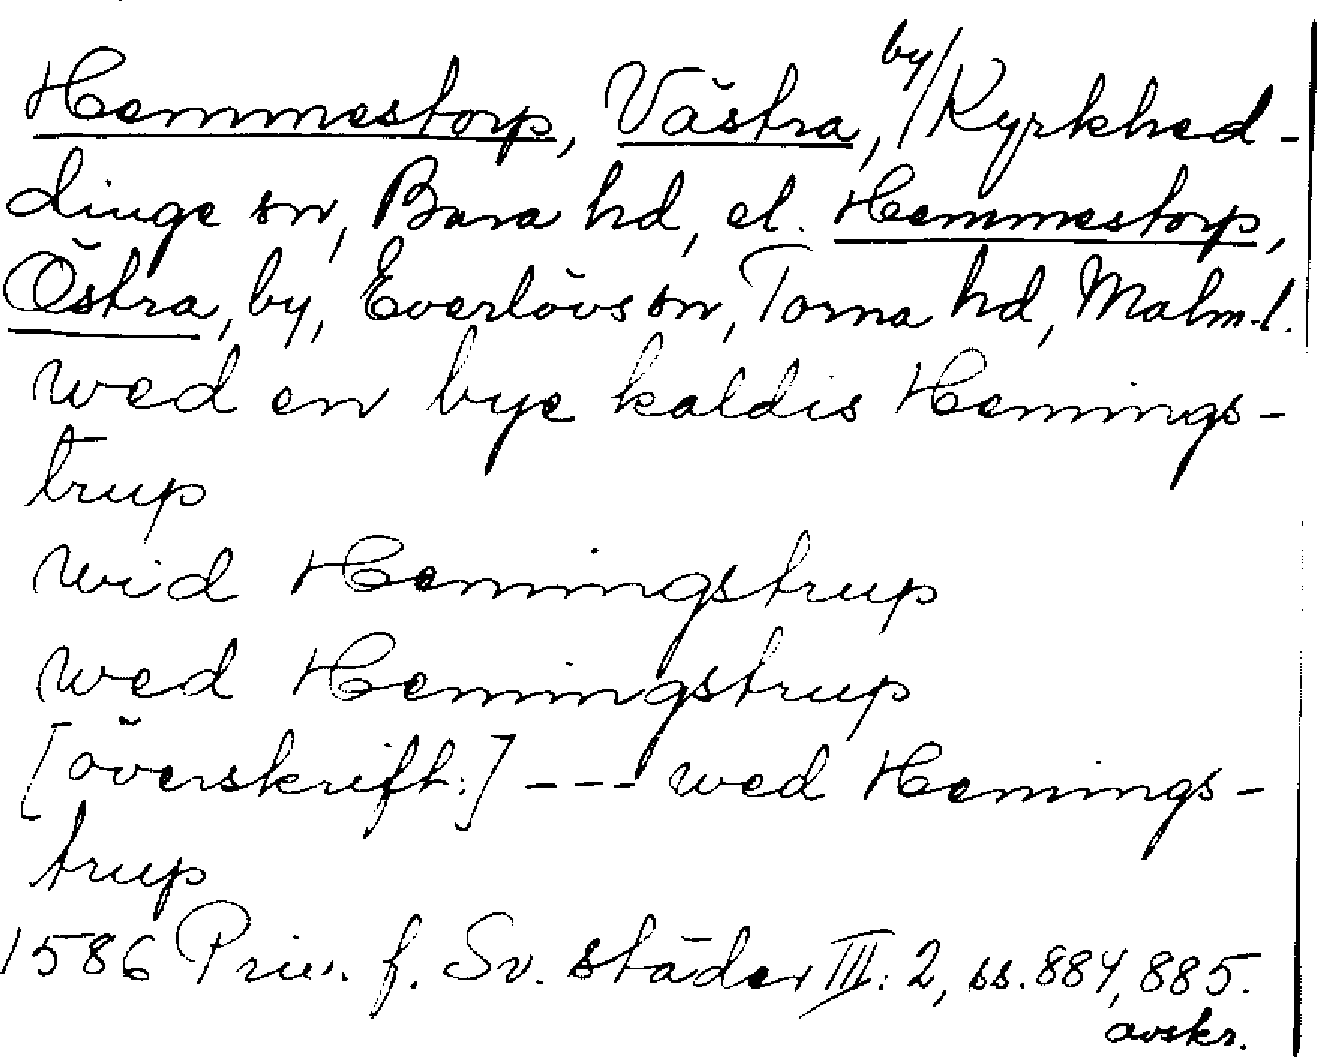 Hemmestorp, Västra, by, Kyrkhed-
dinge sn, Bara hd, el. Hemmestorp,
Östra, by, Everlövs sn, Torna hd, Malm.l.
wed en bye kaldis Hemings-
trup
wid Hemingstrup
wed Hemingstrup
[överskrift:] --- wed Hemings-
trup
1586 Priv. f. Sv. städer III: 2, ss. 884, 885.
avskr.